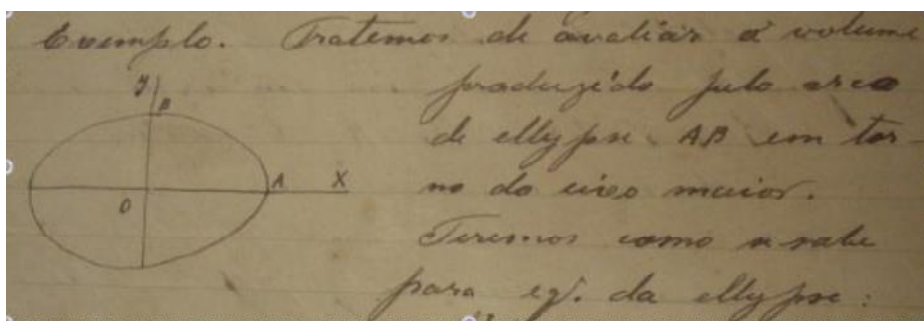 Exemplo. Tratemos de avaliar o volume
produzido pelo arco
de ellypse AB em tor-
no do eixo maior.
Teremos como se sabe
para eq. da ellypse:
Y
B
A
X
O